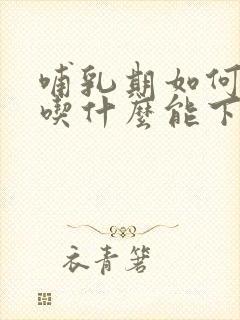 哺乳期如何
喫什麼能下
衣青箬